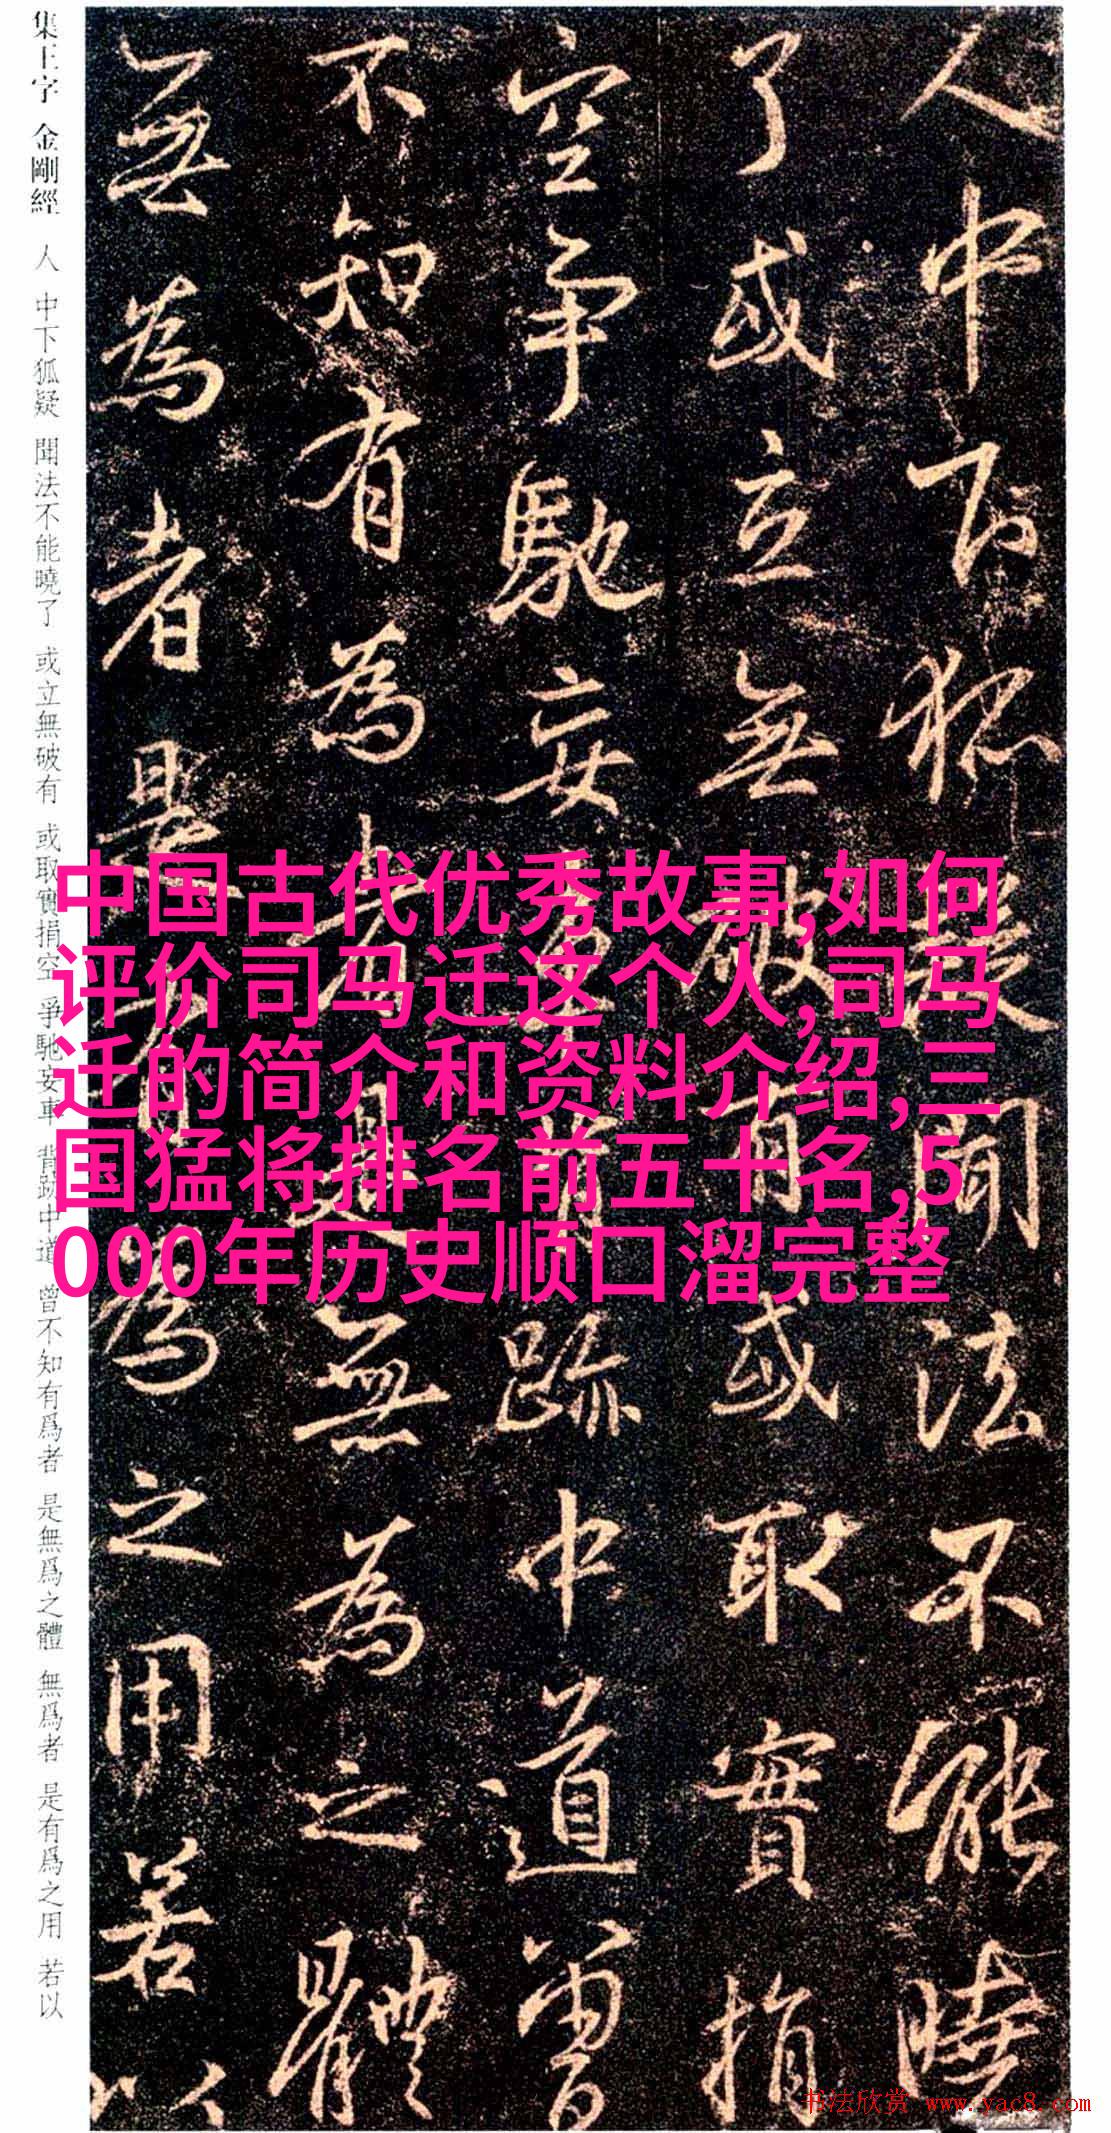 人中下狐疑聞法不能曉
了或立無破有或取實捐
空爭馳妄車背跡中道曾
不知有為者是無為之體
無為者是有為之用若以
集王字 金剛經 人 中下狐疑 聞法不能曉了 或立無破有 或取實捐空 爭馳妄車 背跡中道 曾不知有爲者 是無爲之體 無爲者 是有爲之用 若以
中国古代优秀故事,如何
评价司马迁这个人,司马
迁的简介和资料介绍,三
国猛将排名前五十名,5
000年历史顺口溜完整
书法欣赏 www.yac8.com